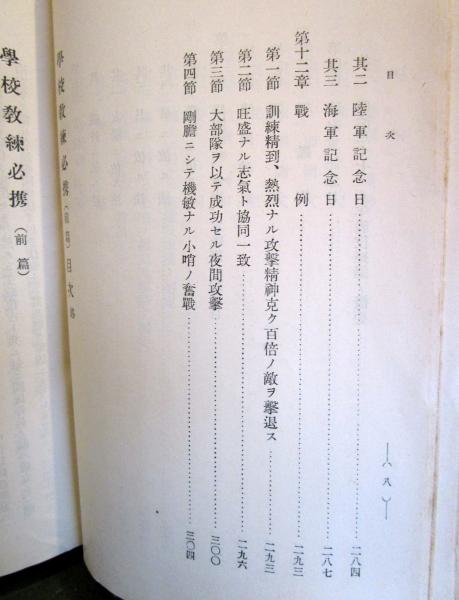 目次
八
其二 陸軍記念日……二八四
其三 海軍記念日……二八七
第十二章 戰例……二九三
第一節 訓練精到、熱烈ナル攻擊精神克ク百倍ノ敵ヲ擊退ス……二九三
第二節 旺盛ナル志氣ト協同一致……二九六
第三節 大部隊ヲ以テ成功セル夜間攻擊……三〇〇
第四節 剛膽ニシテ機敏ナル小哨ノ奮戰……三〇四
學校敎練必携(前篇)目次終
學校敎練必携(前篇)